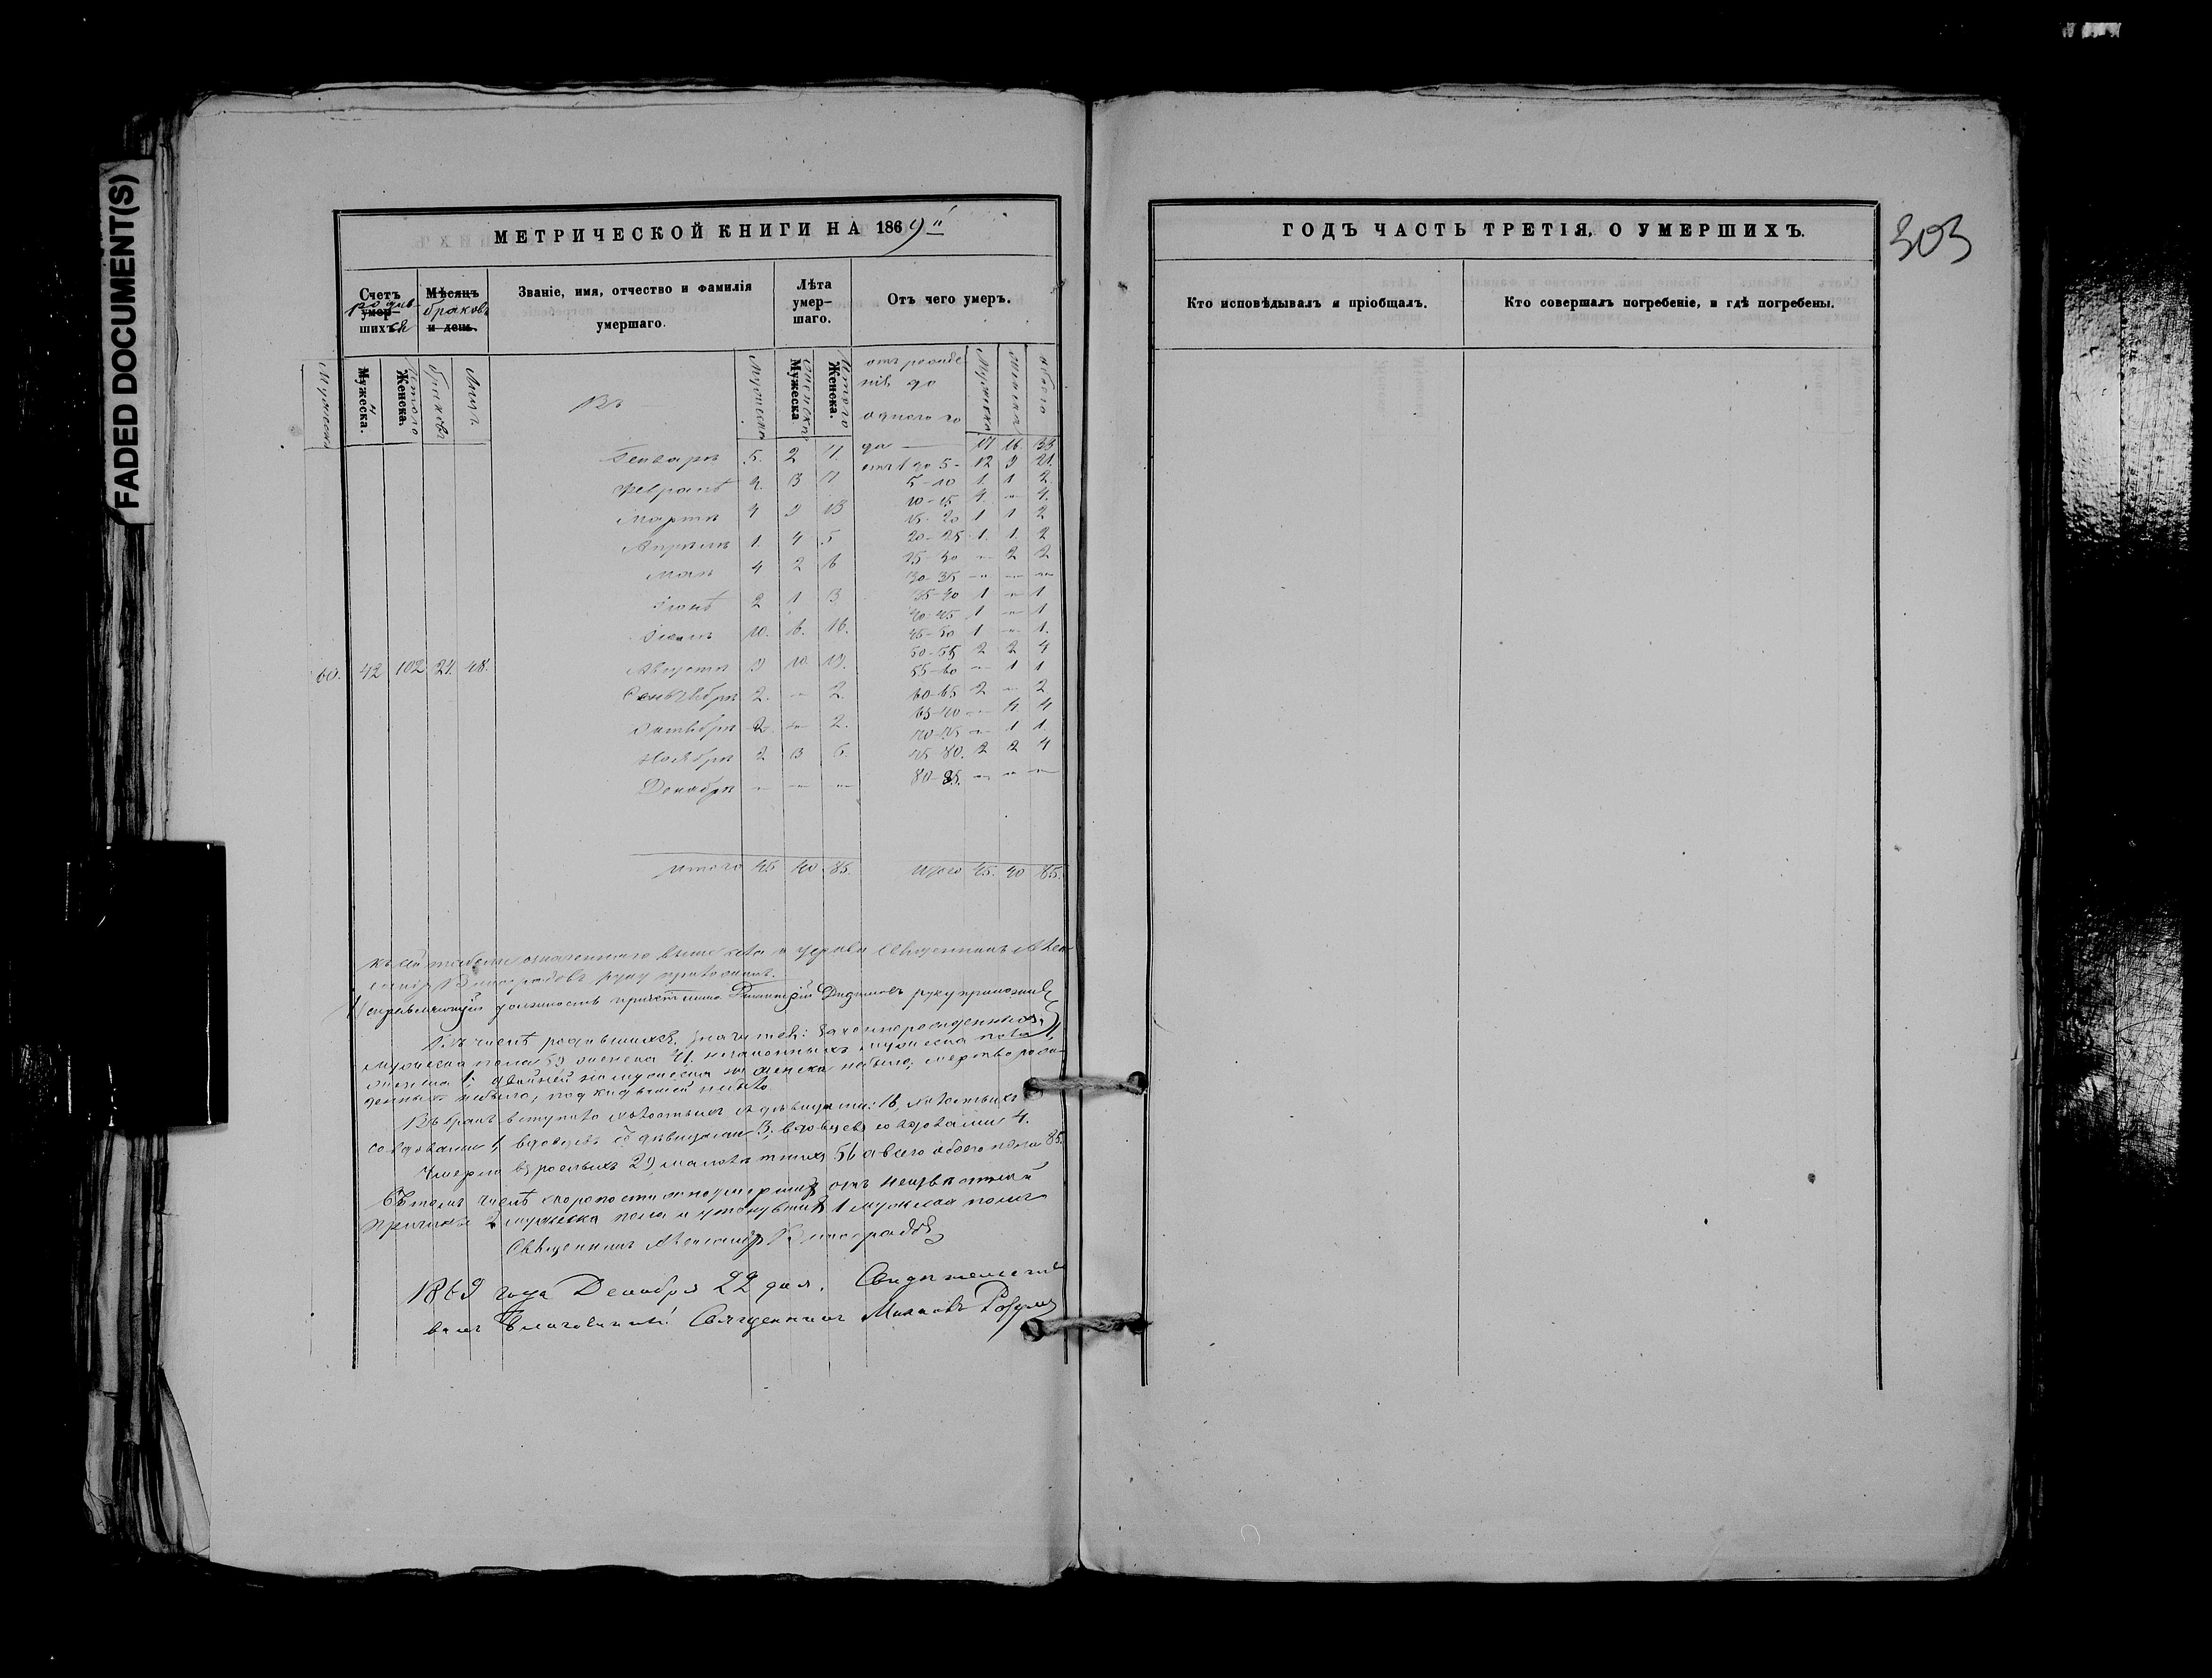 FADED DOCUMENT(S)
МЕТРИЧЕСКОЙ КНИГИ НА 1869й
Счетъ умершихъ.
Мѣсяцъ и день.
браковъ
Званіе, имя, отчество и фамилія умершаго.
Лѣта умершаго.
Отъ чего умеръ.
Мужеска
Мужеска.
Женска.
Итого
браковъ
Лицъ
Въ
Мужеска
Мужеска
Женска.
Итого
отъ рожде
нія до
одного го
да — 17 16 33
Генварѣ 5. 2 7.
отъ 1 до 5 - 12 9 21.
Февралѣ 4. 3 7
5-10 1. 1 2
Мартѣ 4 9 13
10-15 4. " 4.
15-20 1 1 2
Апрѣлѣ 1. 4 5
20-25 1. 1. 2
Маѣ 4 2 6
25-30 " 2 2
30-35 " " "
Іюнѣ 2 1 3
35-40 1 " 1
40-45 1 " 1
Іюлѣ 10. 6. 16.
45-50 1 " 1.
50-55 2 2 4
60. 42 102 24. 48.
Августѣ 9 10. 19.
55-60 " 1 1
Сентябрѣ 2. " 2.
60-65 2 " 2
65-70 " 4. 4
Октябрѣ 2. " 2.
70-75 " 1 1.
Ноябрѣ 2 3 5.
75-80. 2 2 4
Декабрѣ " " "
80-85. " " "
Итого 45 40 85.
Итого 45. 40 85.
Къ сей табели означеннаго выше церкви Священникъ Алек
сандръ Виноградовъ руку приложилъ.
Исправляющій должность причетника Димитрій руку приложилъ
Въ числѣ родившихся значится: законнорожденныхъ
мужеска пола 59 женска 41. незаконныхъ мужеска пола 1,
женска 1; двойней мужеска женска небыло, мертворож
денныхъ небыло, подкидышей
Въ бракъ вступило холостыхъ съ дѣвицами: 16, холостыхъ
со вдовами 1, вдовцевъ съ дѣвицами 3, вдовцевъ со вдовами 4.
Умерло взрослыхъ 29, малолѣтнихъ 56 а всего обоего пола 85.
Въ томъ числѣ скоропостижноумершихъ отъ неизвѣстной
причины 2 мужеска пола и утонувшихъ 1 мужеска пола
Священникъ Александръ Виноградовъ
1869 года Декабря 22 дня. Свидѣтельство
валъ Благочинный Священникъ
ГОДЪ ЧАСТЬ ТРЕТІЯ, О УМЕРШИХЪ.
303
Кто исповѣдывалъ и пріобщалъ.
Кто совершалъ погребеніе, и гдѣ погребены.